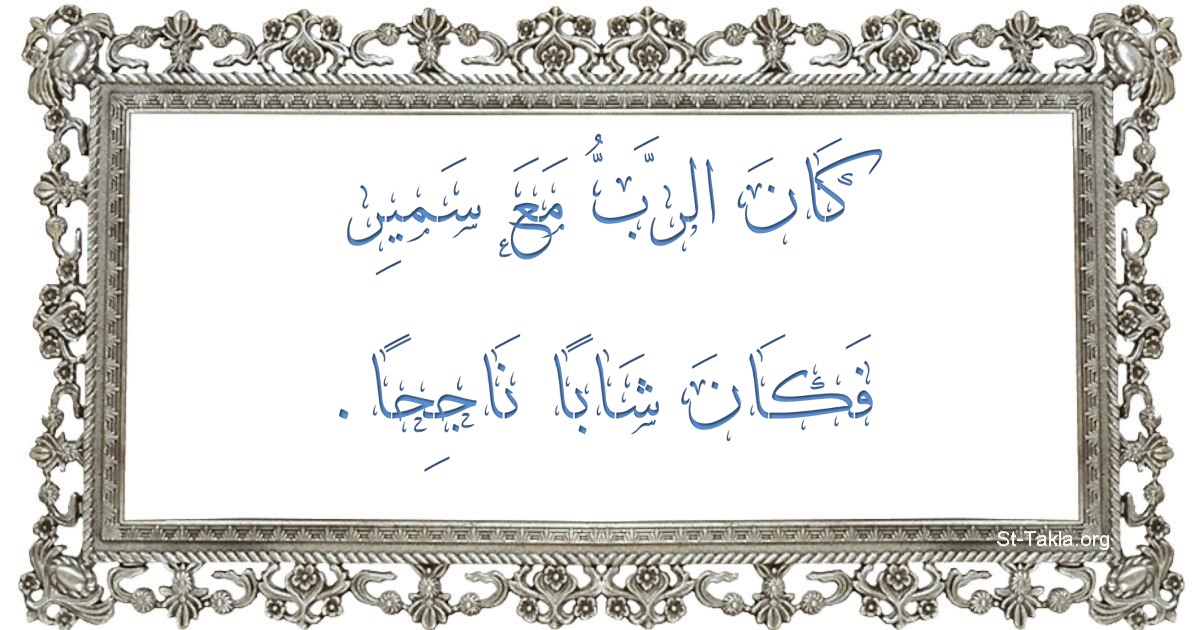 كَانَ الرَّبُّ مَعَ سَمِيرِ
فَكَانَ شَابًا نَاجِحًا .
St-Takla.org